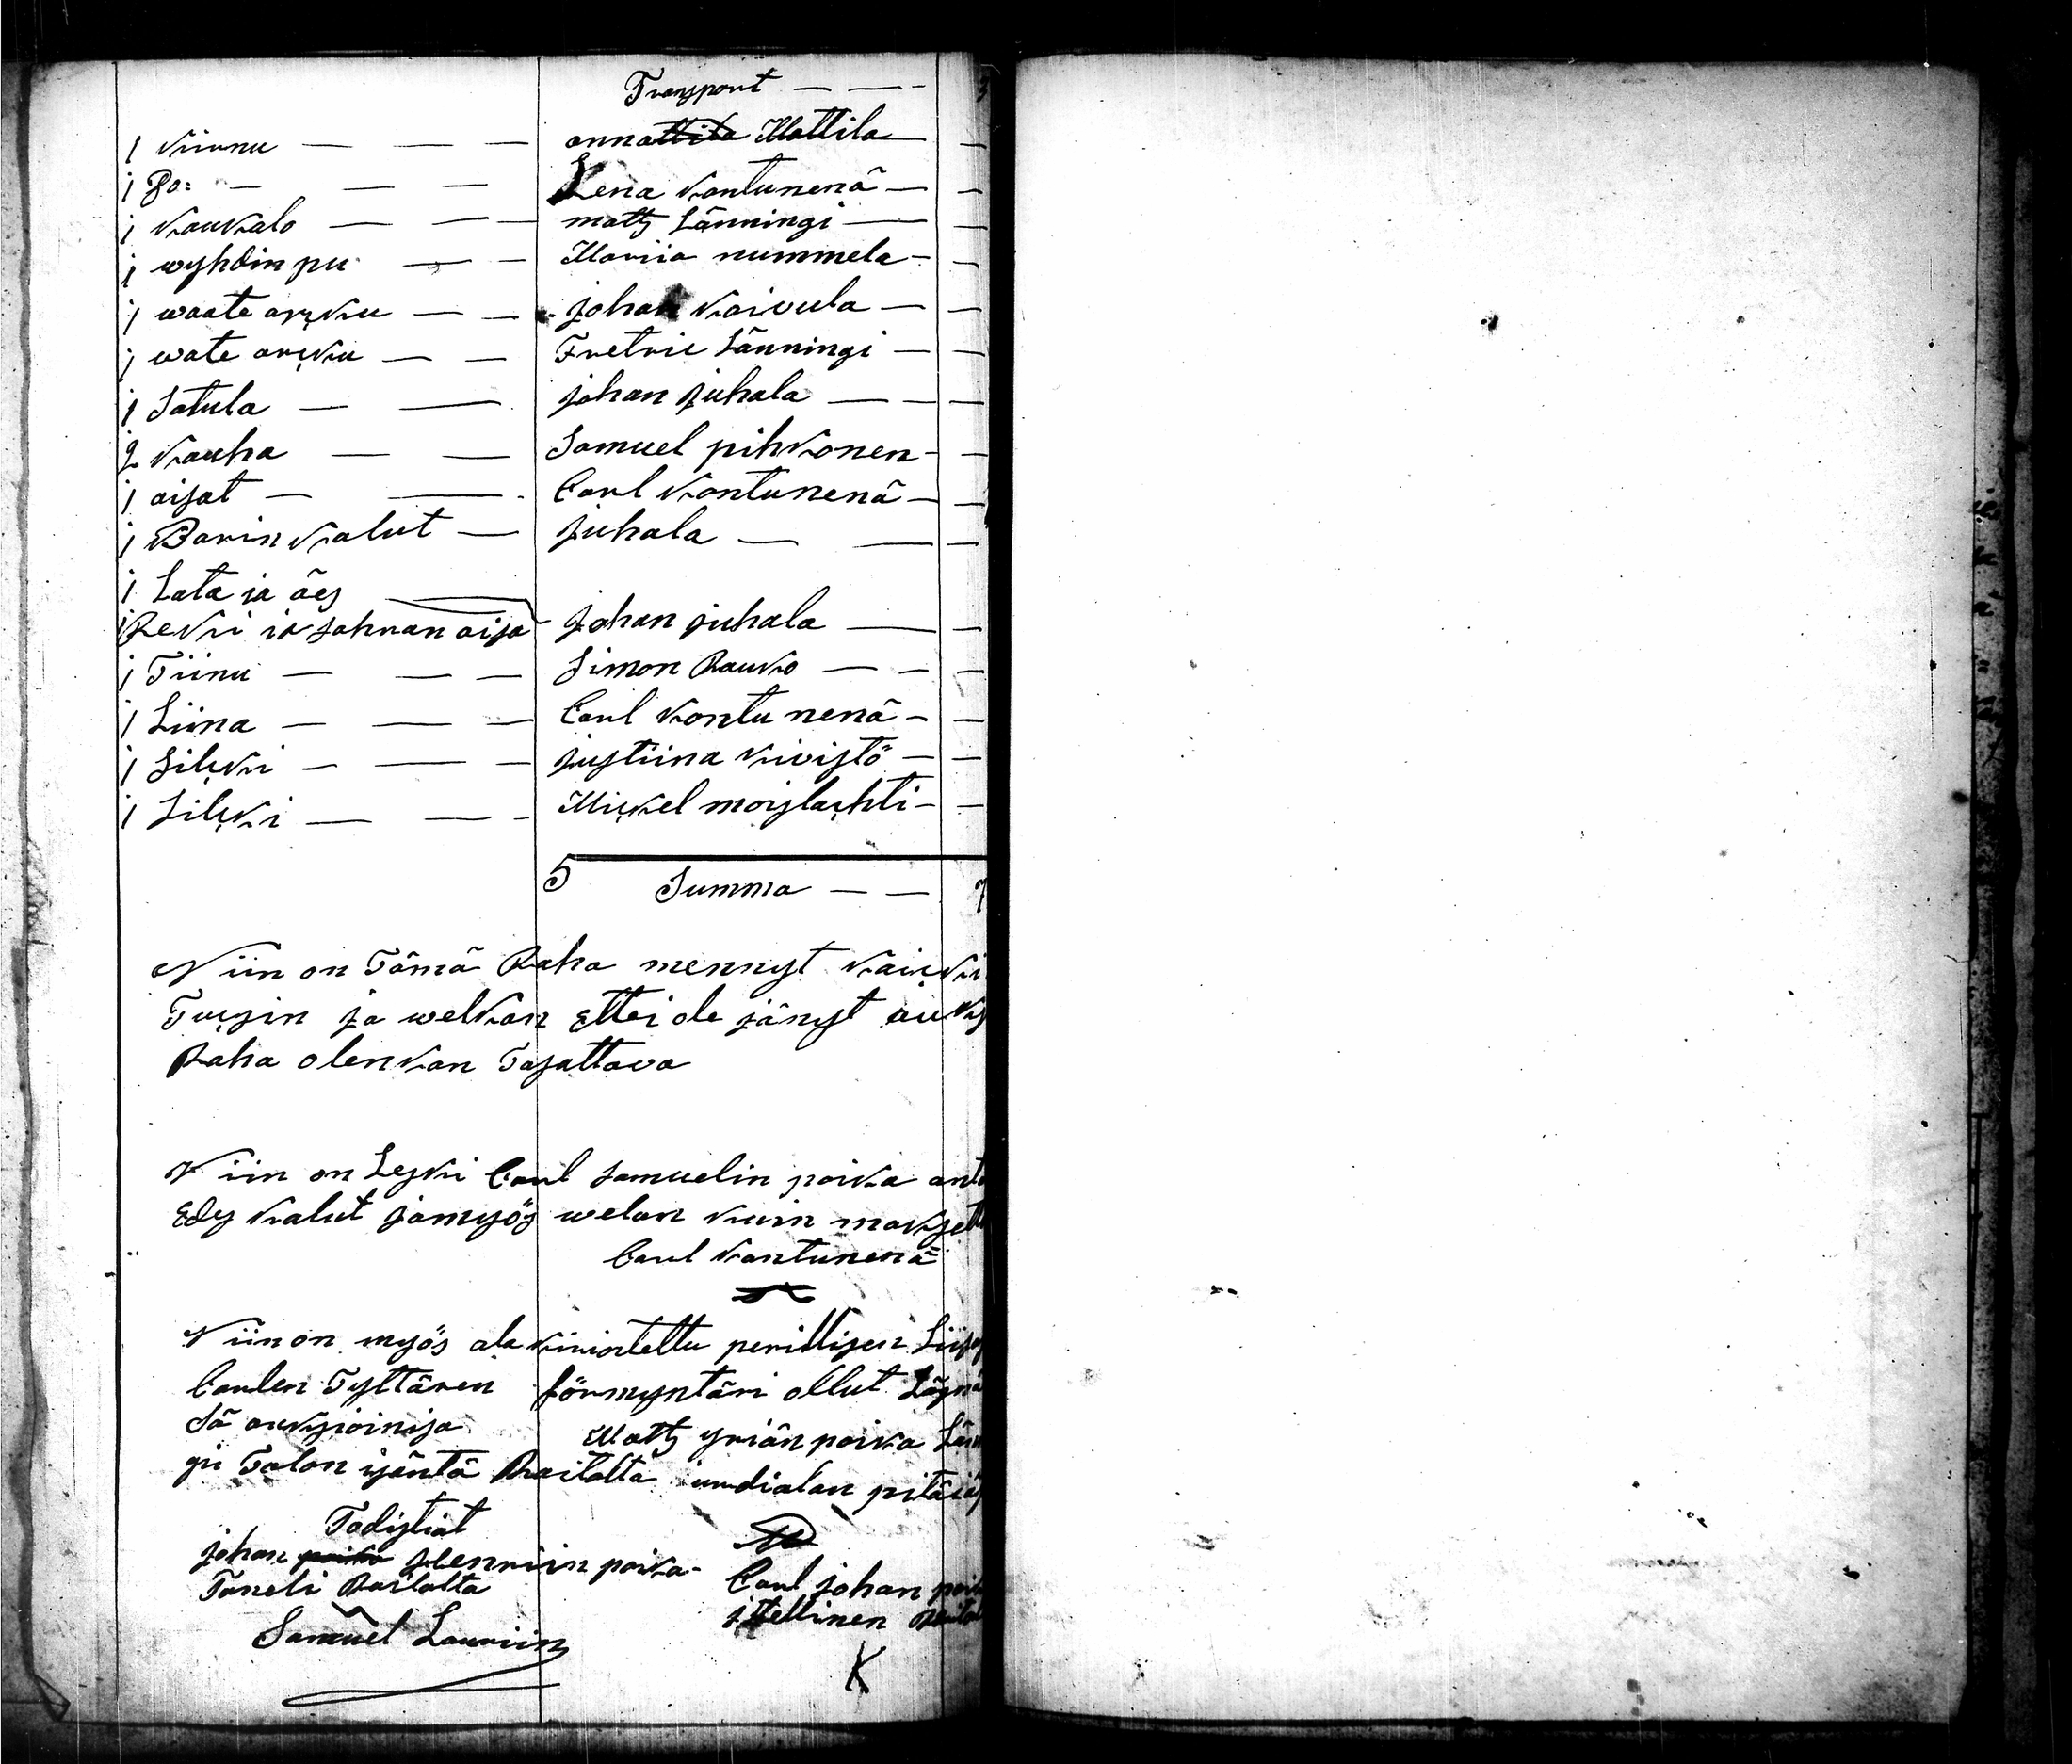 Transport — — -
1 Kiunu — — — anna Mattila —
1 Do: — — — Lena Kontunenä —
1 Kaukalo — — — matts Länningi —
1 wyhdin pu — — Mariia nummela —
1 waate arcku — — johan Koivula —
1 wate arcku — — Fretric Länningi —
1 Satula — — johan juhala — —
2 Kauha — — Samuel pihkonen —
1 aisat — — Carl Kontunenä —
1 Barin Kalut — juhala — —
1 Lata ja äes
1 Reki ja sahran aisa johan juhala —
1 Tiinu — — — Simon Rauko — —
1 Liina — — — Carl Kontunenä —
1 Silcki — — — justiina Kivistö —
1 Silcki — — Mickel moislachti —
5 Summa — — 7
Niin on Tämä Raha mennyt Kaicki
Tucsin ja welkan Ettei ole jänyt
Raha olenkan Tasattava
Niin on Leski Carl Samuelin poika
Edes Kalut jamyös welan Kuin
Carl Kontunenä
Niin on myös ala Kiriotettu perillisen
Carlen Tyttären förmyntäri ollut
sä auksioinisa Matts yriän poika
gin Talon isäntä Raitalta iurdialan
Todistiat
johan poika Henriin poika
Taneli Raitalta Carl johan
Samuel Lauriin
K